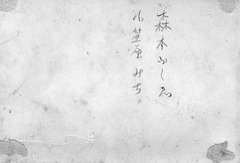 森本ふし
小笠原みち